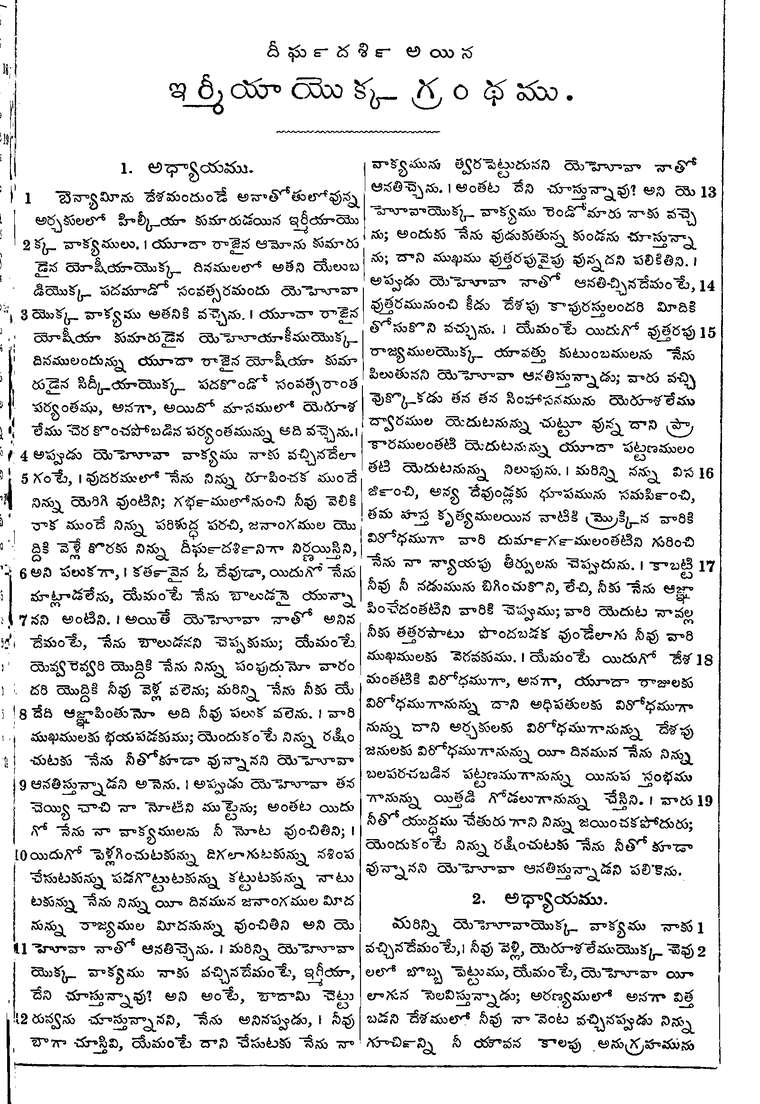 దీర్ఘదర్శి అయిన
ఇర్మీయాయొక్క గ్రంథము.
1. అధ్యాయము.
1 బెన్యామీను దేశమందుండే అనాతోతులోవున్న
అర్చకులలో హిల్కీయా కుమారుడయిన ఇర్మీయాయొ
2 క్క వాక్యములు. । యూదా రాజైన ఆమోను కుమారు
డైన యోషీయాయొక్క దినములలో అతని యేలుబ
డియొక్క పదమూడో సంవత్సరమందు యెహోవా
3 యొక్క వాక్యము అతనికి వచ్చెను. । యూదా రాజైన
యోషీయా కుమారుడైన యెహోయాకీముయొక్క
దినములందున్ను యూదా రాజైన యోషీయా కుమా
రుడైన సిద్కీయాయొక్క పదకొండో సంవత్సరాంత
పర్యంతము, అనగా, అయిదో మాసములో యెరూశ
లేము చెర కొంచపోబడిన పర్యంతమున్ను అది వచ్చెను. ।
4 అప్పుడు యెహోవా వాక్యము నాకు వచ్చినదేలా
5 గంటే, । వుదరములో నేను నిన్ను రూపించక ముందే
నిన్ను యెరిగి వుంటిని; గర్భములోనుంచి నీవు వెలికి
రాక ముందే నిన్ను పరిశుద్ధ పరచి, జనాంగముల యొ
ద్దికి వెళ్లే కొరకు నిన్ను దీర్ఘదర్శినిగా నిర్ణయిస్తిని,
6 అని పలుకగా, । కర్తవైన ఓ దేవుడా, యిదుగో నేను
మాట్లాడలేను, యేమంటే నేను బాలుడనై యున్నా
7 నని అంటిని. । అయితే యెహోవా నాతో అనిన
దేమంటే, నేను బాలుడనని చెప్పకుము; యేమంటే
యెవ్వరెవ్వరి యొద్దికి నేను నిన్ను పంపుదునో వారం
దరి యొద్దికి నీవు వెళ్ల వలెను; మరిన్ని నేను నీకు యే
8 దేది ఆజ్ఞాపింతునో అది నీవు పలుక వలెను. । వారి
ముఖములకు భయపడకుము; యెందుకంటే నిన్ను రక్షిం
చుటకు నేను నీతోకూడా వున్నానని యెహోవా
9 ఆనతిస్తున్నాడని అనెను. । అప్పుడు యెహోవా తన
చెయ్యి చాచి నా నోటిని ముట్టెను; అంతట యిదు
గో నేను నా వాక్యములను నీ నోట వుంచితిని; ।
10 యిదుగో పెళ్లగించుటకున్ను దిగలాగుటకున్ను నశింప
చేసుటకున్ను పడగొట్టుటకున్ను కట్టుటకున్ను నాటు
టకున్ను నేను నిన్ను యీ దినమున జనాంగముల మీద
నున్ను రాజ్యముల మీదనున్ను వుంచితిని అని యె
11 హోవా నాతో ఆనతిచ్చెను. । మరిన్ని యెహోవా
యొక్క వాక్యము నాకు వచ్చినదేమంటే, ఇర్మీయా,
దేని చూస్తున్నావు? అని అంటే, బాదామి చెట్టు
12 రువ్వను చూస్తున్నానని, నేను అనినప్పుడు, । నీవు
బాగా చూస్తివి, యేమంటే దాని చేసుటకు నేను నా
వాక్యమును త్వరపెట్టుదునని యెహోవా నాతో
ఆనతిచ్చెను. । అంతట దేని చూస్తున్నావు? అని యె 13
హోవాయొక్క వాక్యము రెండోమారు నాకు వచ్చె
ను; అందుకు నేను వుడుకుతున్న కుండను చూస్తున్నా
ను; దాని ముఖము వుత్తరపువైపు వున్నదని పలికితిని. ।
అప్పుడు యెహోవా నాతో ఆనతిచ్చినదేమంటే, 14
వుత్తరమునుంచి కీడు దేశపు కాపురస్తులందరి మీదికి
తోసుకొని వచ్చును. । యేమంటే యిదుగో వుత్తరపు 15
రాజ్యములయొక్క యావత్తు కుటుంబములను నేను
పిలుతునని యెహోవా ఆనతిస్తున్నాడు; వారు వచ్చి
వొక్కొకడు తన తన సింహాసనమును యెరూశలేము
ద్వారముల యెదుటనున్ను చుట్టూ వున్న దాని ప్రా
కారములంతటి యెదుటనున్ను యూదా పట్టణములం
తటి యెదుటనున్ను నిలుపును. । మరిన్ని నన్ను విస 16
ర్జించి, అన్య దేవుండ్లకు ధూపమును సమర్పించి,
తమ హస్త కృత్యములయిన వాటికి మ్రొక్కిన వారికి
విరోధముగా వారి దుర్మార్గములంతటిని గురించి
నేను నా న్యాయపు తీర్పులను చెప్పుదును. । కాబట్టి 17
నీవు నీ నడుమును బిగించుకొని, లేచి, నీకు నేను ఆజ్ఞా
పించేదంతటిని వారికి చెప్పుము; వారి యెదుట నావల్ల
నీకు తత్తరపాటు పొందబడక వుండేలాగు నీవు వారి
ముఖములకు వెరవకుము. । యేమంటే యిదుగో దేశ 18
మంతటికి విరోధముగా, అనగా, యూదా రాజులకు
విరోధముగానున్ను దాని అధిపతులకు విరోధముగా
నున్ను దాని అర్చకులకు విరోధముగానున్ను దేశపు
జనులకు విరోధముగానున్ను యీ దినమున నేను నిన్ను
బలపరచబడిన పట్టణముగానున్ను యినుప స్తంభము
గానున్ను యిత్తడి గోడలుగానున్ను చేస్తిని. । వారు 19
నీతో యుద్ధము చేతురు గాని నిన్ను జయించకపోదురు;
యెందుకంటే నిన్ను రక్షించుటకు నేను నీతో కూడా
వున్నానని యెహోవా ఆనతిస్తున్నాడని పలికెను.
2. అధ్యాయము.
మరిన్ని యెహోవాయొక్క వాక్యము నాకు 1
వచ్చినదేమంటే, । నీవు వెళ్లి, యెరూశలేముయొక్క చెవు 2
లలో బొబ్బ పెట్టుము, యేమంటే, యెహోవా యీ
లాగున సెలవిస్తున్నాడు; అరణ్యములో అనగా విత్త
బడని దేశములో నీవు నా వెంట వచ్చినప్పుడు నిన్ను
గూర్చిన్ని నీ యౌవన కాలపు అనుగ్రహమును